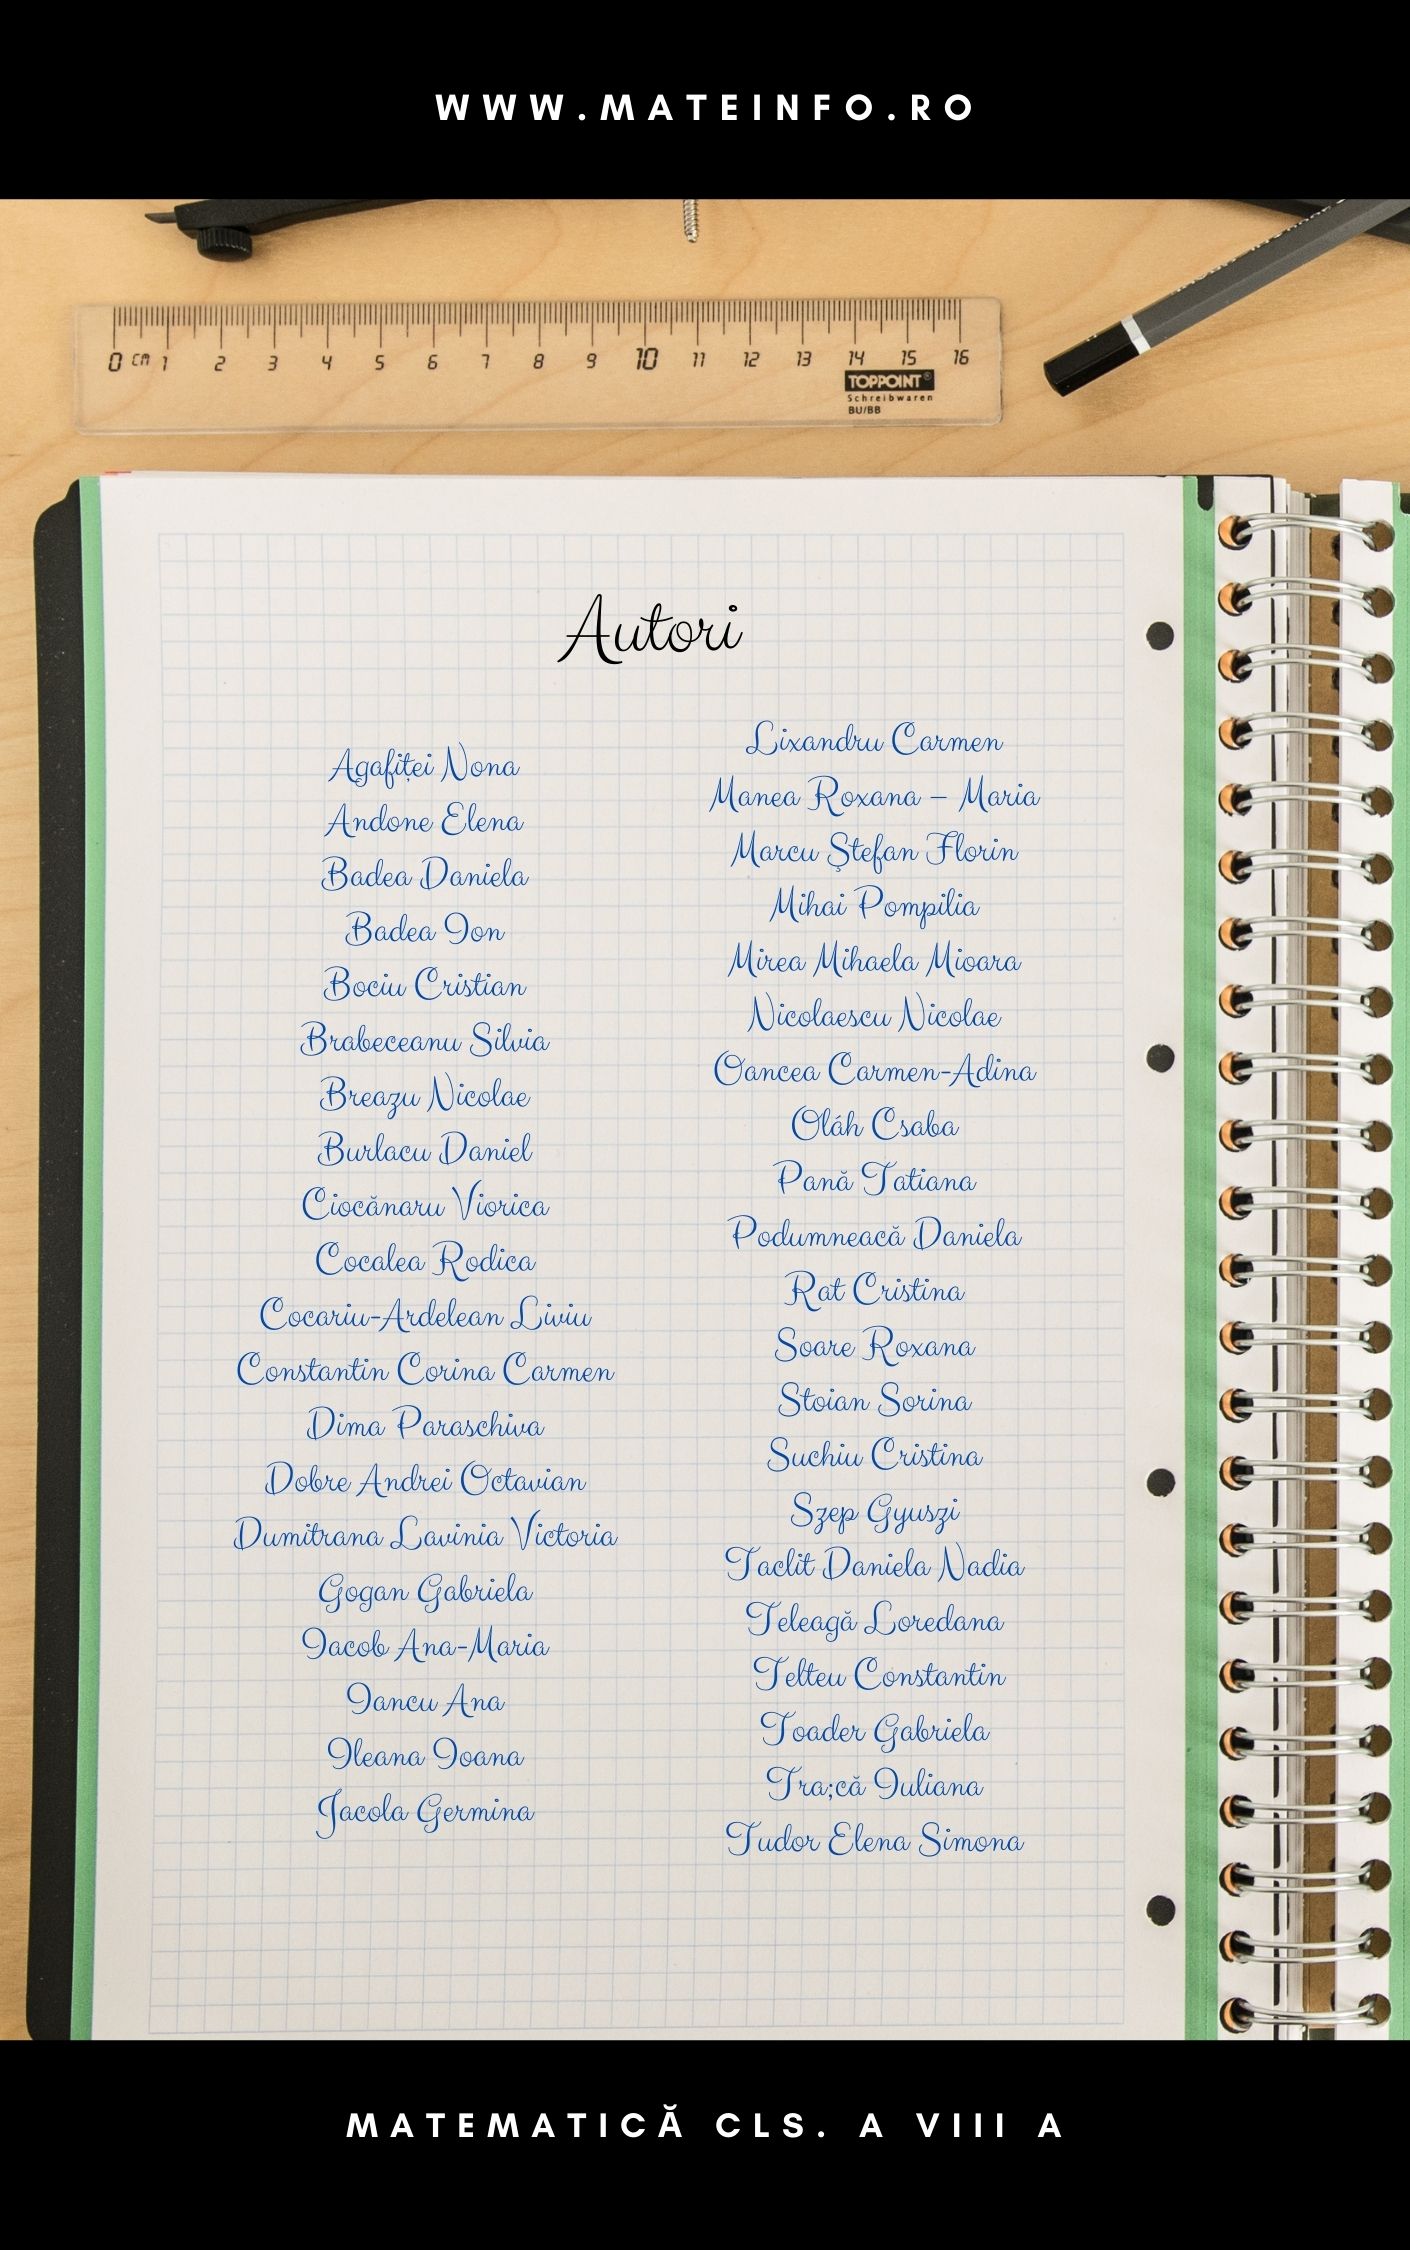 WWW.MATEINFO.RO
0 CM 1 2 3 4 5 6 7 8 9 10 11 12 13 14 15 16
TOPPOINT®
Schreibwaren
BU/BB
Autori
Agafiței Nona
Andone Elena
Badea Daniela
Badea Ion
Bociu Cristian
Brabeceanu Silvia
Breazu Nicolae
Burlacu Daniel
Ciocănaru Viorica
Cocalea Rodica
Cocariu-Ardelean Liviu
Constantin Corina Carmen
Dima Paraschiva
Dobre Andrei Octavian
Dumitrana Lavinia Victoria
Gogan Gabriela
Iacob Ana-Maria
Iancu Ana
Ileana Ioana
Jacola Germina
Lixandru Carmen
Manea Roxana – Maria
Marcu Ştefan Florin
Mihai Pompilia
Mirea Mihaela Mioara
Nicolaescu Nicolae
Oancea Carmen-Adina
Oláh Csaba
Pană Tatiana
Podumneacă Daniela
Rat Cristina
Soare Roxana
Stoian Sorina
Suchiu Cristina
Szep Gyuszi
Taclit Daniela Nadia
Teleagă Loredana
Telteu Constantin
Toader Gabriela
Tra;că Iuliana
Tudor Elena Simona
MATEMATICĂ CLS. A VIII A